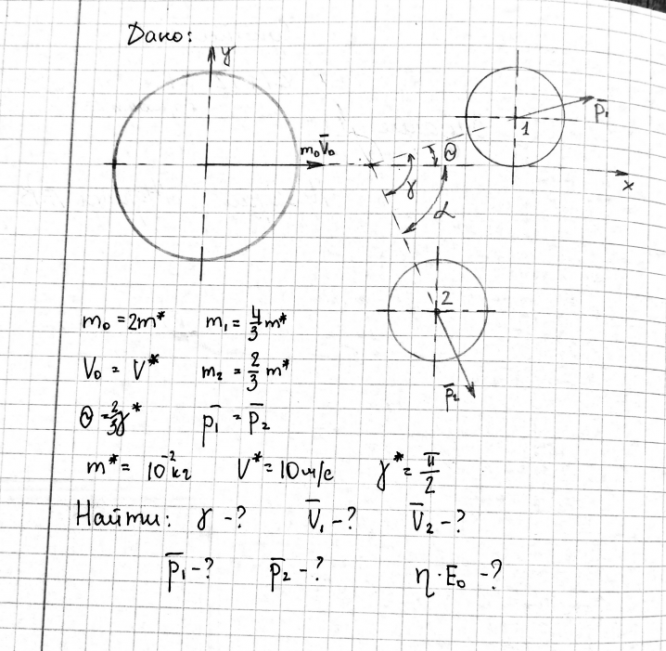 Дано:
y
p̄₁
1
m₀V̄₀
Θ
x
γ
α
2
p̄₂
m₀ = 2m* m₁ = 4/3 m*
V₀ = V* m₂ = 2/3 m*
Θ = 2/3 γ* p̄₁ = p̄₂
m* = 10⁻² кг V* = 10 м/с γ* = π/2
Найти: γ - ? V̄₁ - ? V̄₂ - ?
p̄₁ - ? p̄₂ - ? η · E₀ - ?